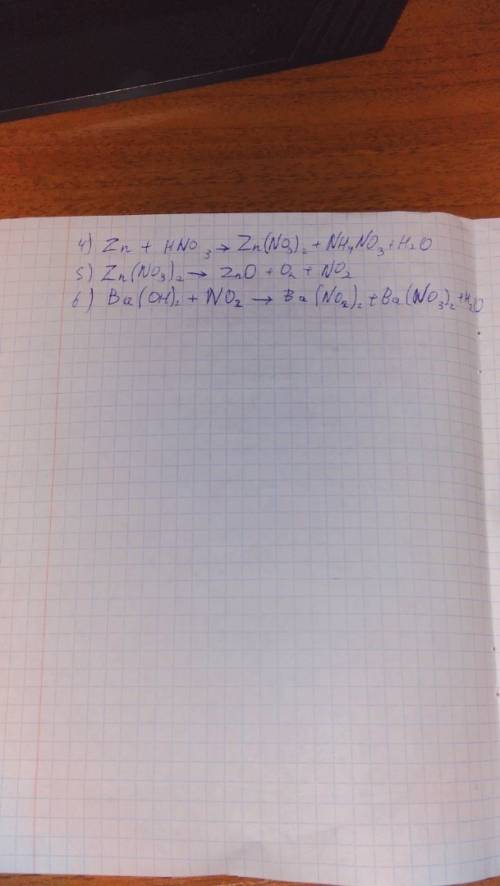 4) Zn + HNO3 → Zn(NO3)2 + NH4NO3 + H2O
5) Zn(NO3)2 → ZnO + O2 + NO2
6) Ba(OH)2 + NO2 → Ba(NO2)2 + Ba(NO3)2 + H2O